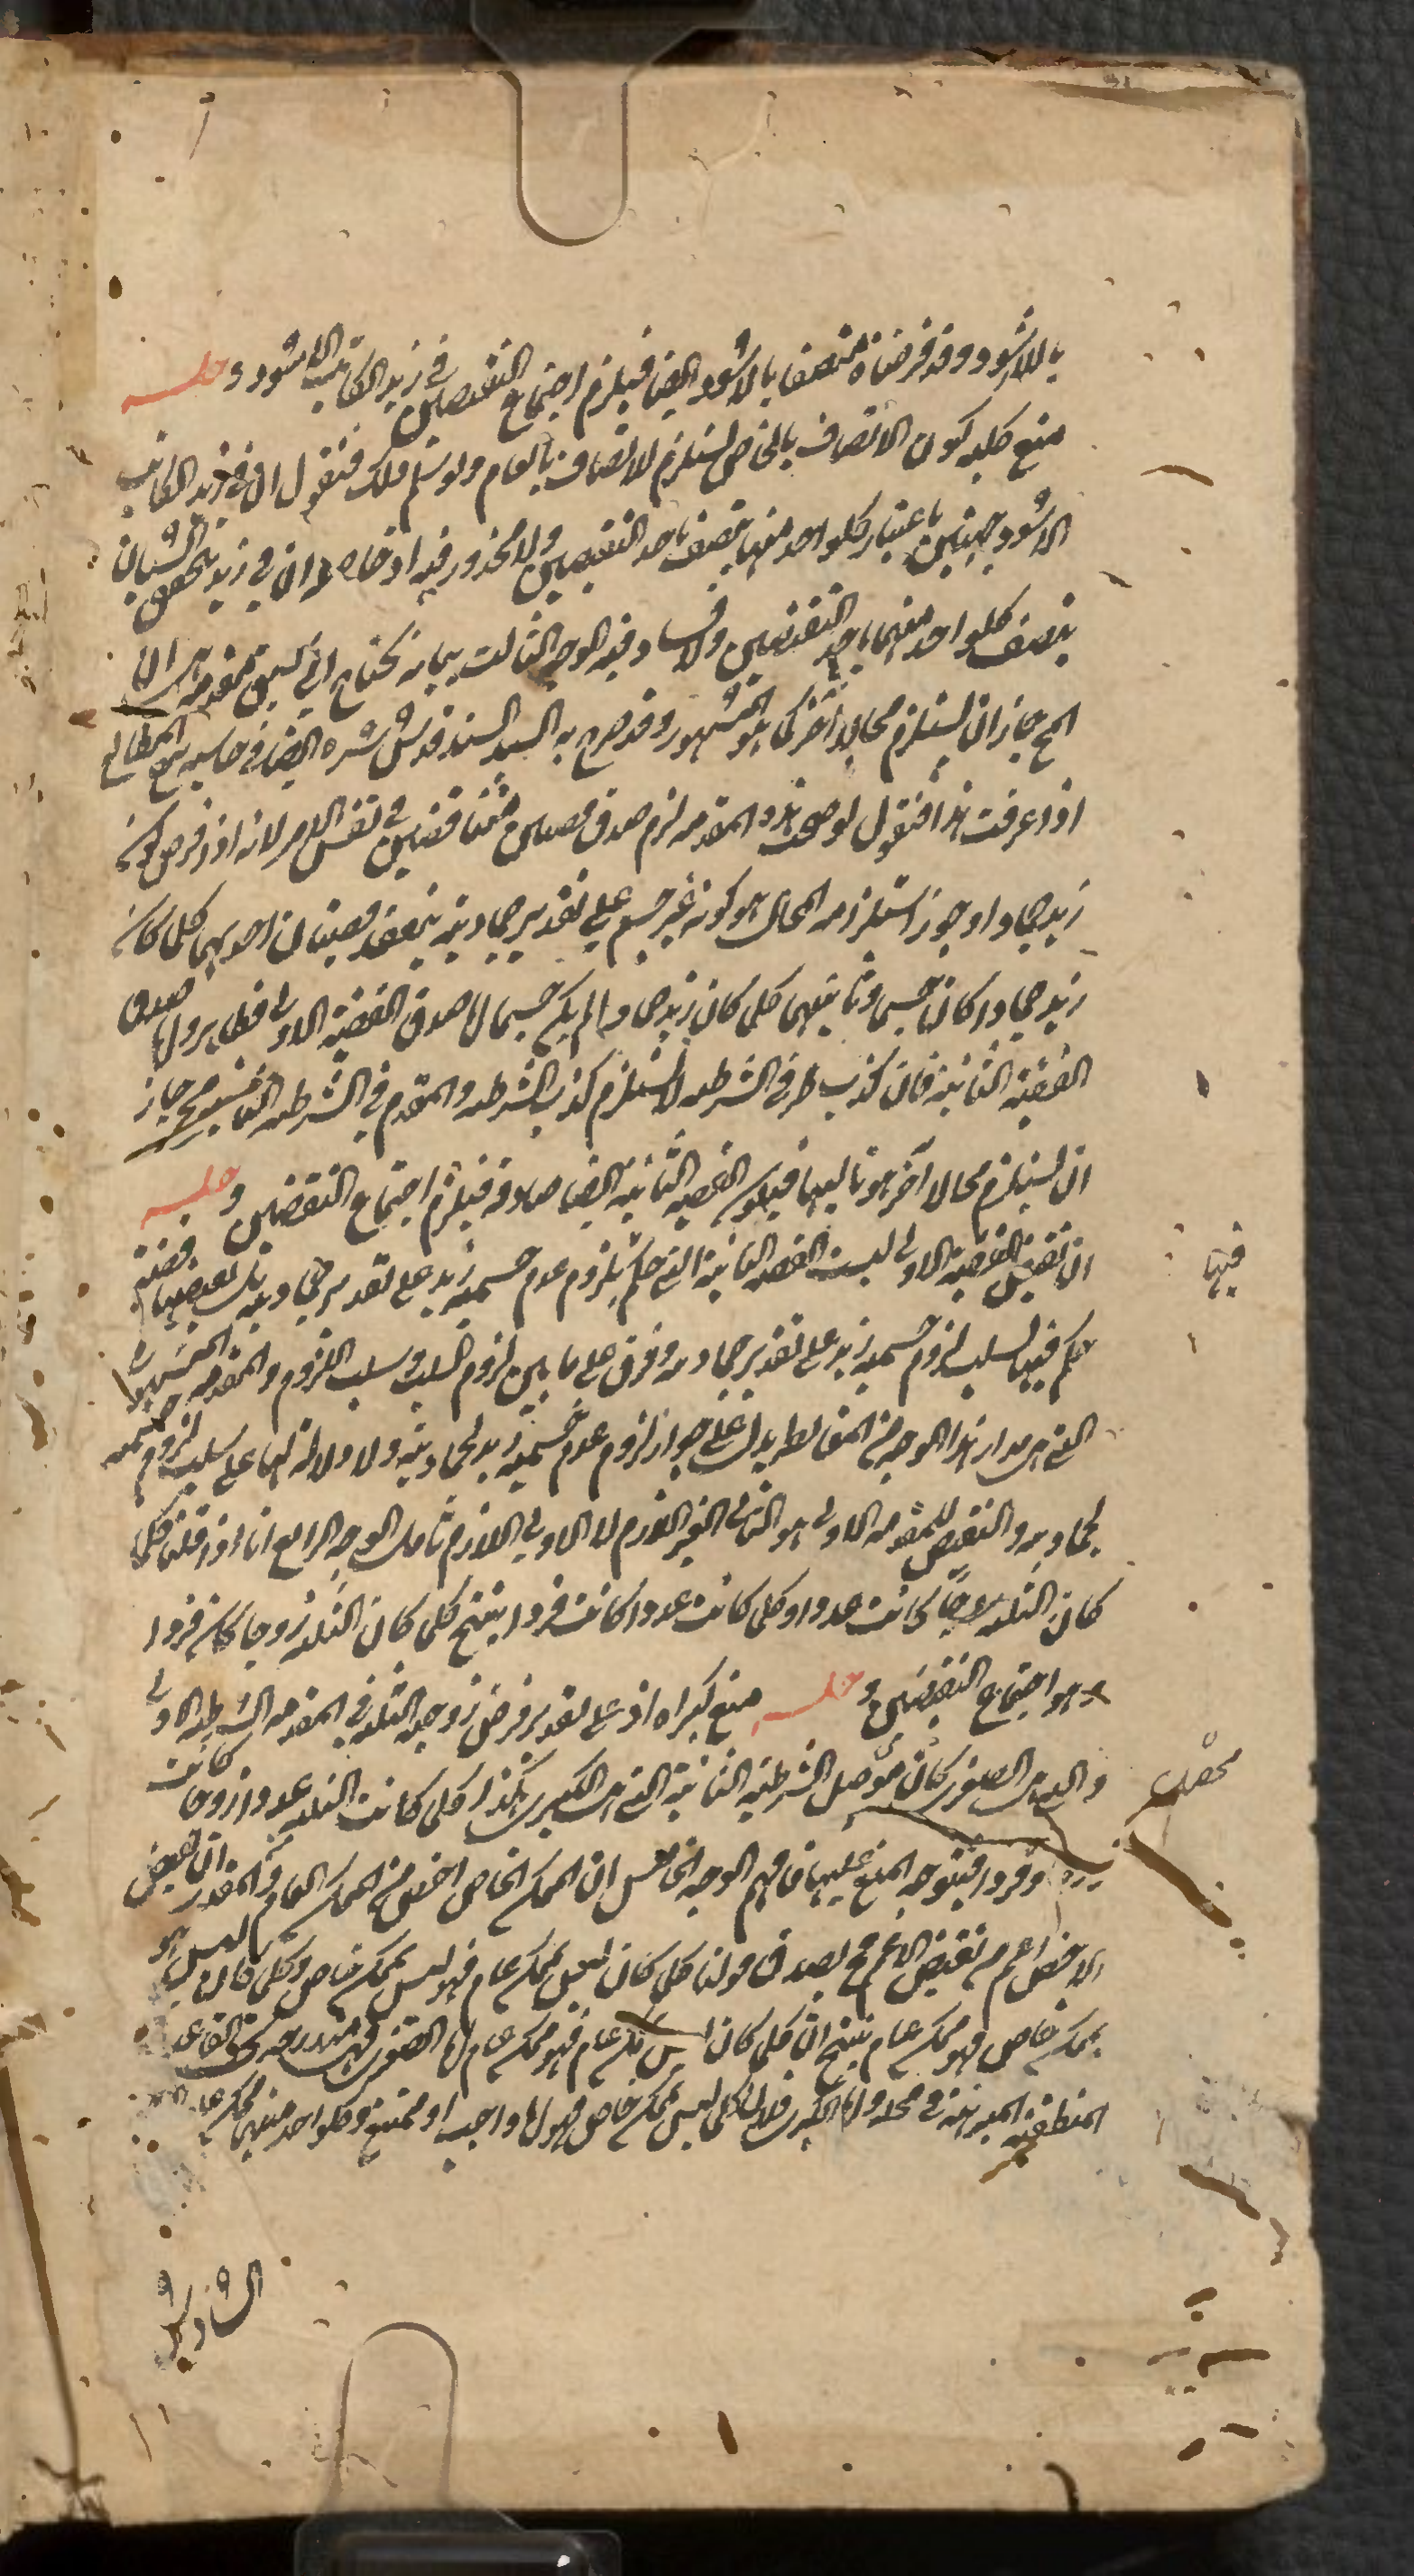 باللاسود وقد فرضناه متصفا بالاسود ايضا فيلزم اجتماع النقيضين في زيد الكاتب الاسود وحله
منع كلية كون الاتصاف بالخاص يستلزم الاتصاف بالعام ولو سلم ذلك فنقول ان في زيد الكاتب
الاسود جهتين باعتبار كلواحد منهما يتصف باحد النقيضين ولا محذور فيه اذ حاصله ان في زيد تحقق الشيئان
يتصف كلواحد منهما باحد النقيضين ولا فساد فيه الوجه الثالث بيانه يحتاج الى تمهيد مقدمة هي ان
المح جاز ان يستلزم محالا آخر كما هو المشهور وقد صرح به السيد السند قدس سره ايضا في حاشية المطالع
اذا عرفت هذا فنقول لو صحت هذه المقدمة لزم صدق قضيتين متناقضتين في نفس الامر لانه اذا فرض كون
زيد جمادا وجوز استلزامه المحال هو كونه غير جسم على تقدير جماديته ينعقد قضيتان احديهما كلما كان
زيد جمادا كان جسما وثانيتهما كلما كان زيد جمادا لم يكن جسما اما صدق القضية الاولى فظاهر واما صدق
القضية الثانية فلان كذب طرفي الشرطية لا يستلزم كذب الشرطية والمقدم في الشرطية الثانية مح جاز
ان يستلزم محالا آخر هو تاليها فيكون القضية الثانية ايضا صادقة فيلزم اجتماع النقيضين وحله
ان نقيض القضية الاولى ليست القضية الثانية التي حكم بلزوم عدم جسمية زيد على تقدير جماديته بل نقيضها قضية
حكم فيها بسلب لزوم جسمية زيد على تقدير جماديته وفرق على ما بين لزوم السلب وسلب اللزوم والمقدمة المشهورة
التي هي مدار هذا الوجه من المغالطة يدل على جواز لزوم عدم جسمية زيد لجماديته ولا دلالة لها على سلب لزوم جسمية
لجماديته والنقيض للمقدمة الاولى هو الثاني الغير اللازم لا الاول اللازم تأمل الوجه الرابع انا اذا قلنا كلما
كان الثلثة زوجا كانت عددا وكلما كانت عددا كانت فردا ينتج كلما كان الثلثة زوجا كان فردا
وهو اجتماع النقيضين وحله منع كبراه اذ على تقدير فرض زوجية الثلثة في المقدمة الشرطية الاولى
والتي هي الصغرى كان محصل الشرطية الثانية التي هي الكبرى هكذا كلما كانت الثلثة عددا زوجا كانت
فردا فيتوجه المنع عليها فافهم الوجه الخامس ان الممكن الخاص اخص من الممكن العام والمقدر ان نقيض
الاخص اعم من نقيض الاعم فح يصدق قولنا كلما كان ليس بممكن عام فهو ليس بممكن خاص وكلما كان ليس هو
بممكن خاص فهو ممكن عام ينتج ان كلما كان ليس بممكن عام فهو ممكن عام اما الصغرى فهي مندرجة تحت القاعدة
المنطقية المبرهنة في محله واما الكبرى فلان كلما ليس بممكن خاص فهو اما واجب او ممتنع وكلواحد منهما ممكن عام
فيها
محصل
السادس